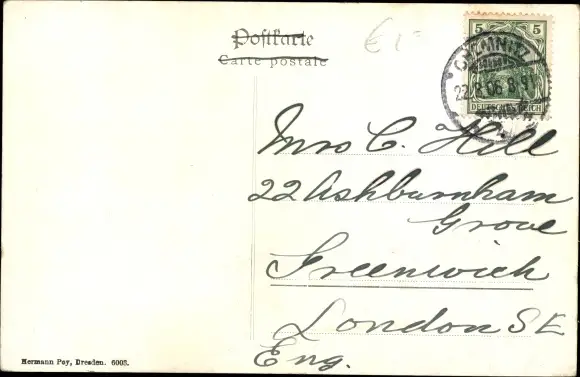 Postkarte
Carte postale
€ 1-
5 5
DEUTSCHES REICH
CHEMNITZ
22.8.06.8-9V
Mrs C. Hill
22 Ashburnham
Grove
Greenwich
London S E
Eng.
Hermann Poy, Dresden. 6003.